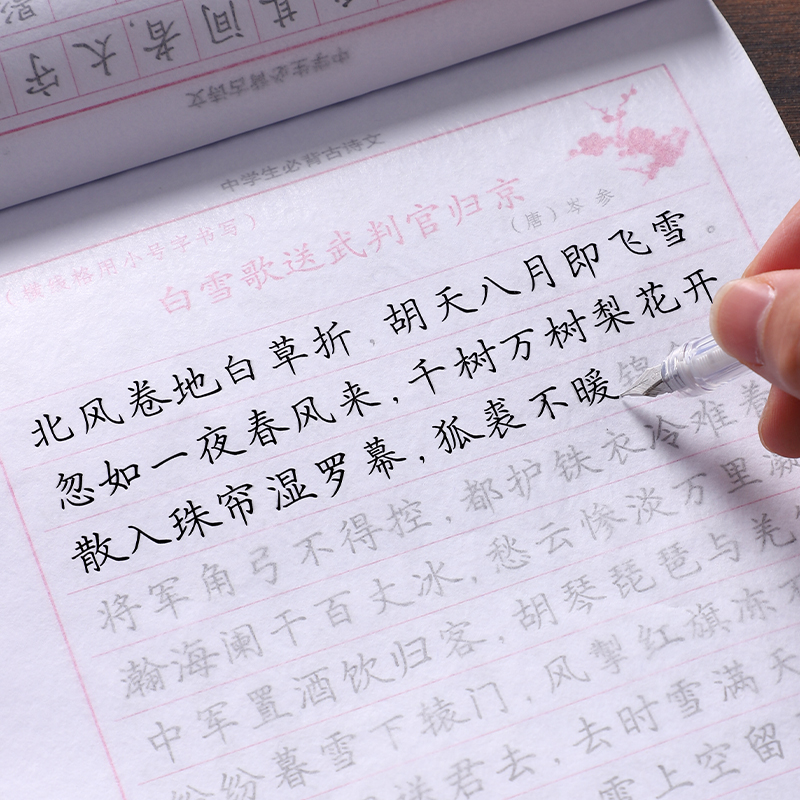 守 大 者, 其 间
中学生必背古诗文
中学生必背古诗文
(横线格用小号字书写)
白雪歌送武判官归京
(唐) 岑 参
北风卷地白草折,胡天八月即飞雪。
忽如一夜春风来,千树万树梨花开
散入珠帘湿罗幕,狐裘不暖锦
将军角弓不得控,都护铁衣冷难着
瀚海阑干百丈冰,愁云惨淡万里凝
中军置酒饮归客,胡琴琵琶与羌
纷纷暮雪下辕门,风掣红旗冻
送君去,去时雪满天
雪上空留